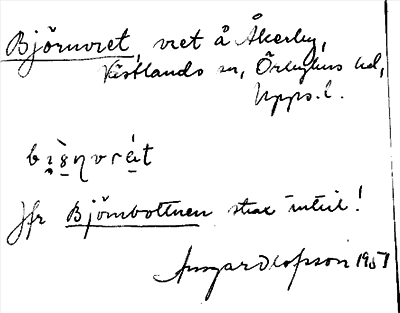 Björnvret, vret å Åkerby,
Västlands sn, Örbyhus hd,
Upps. l.
bı̣ö̀ṇvrét
Jfr Björnbottnen strax intill!
Ansgar Olofsson 1951